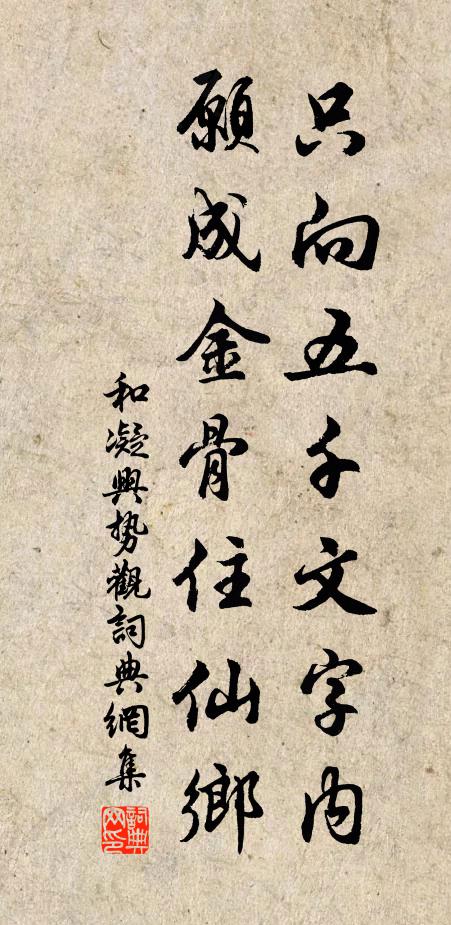 只向五千文字内
願成金骨住仙鄉
和凝興势觀詞典網集
詞典
网印